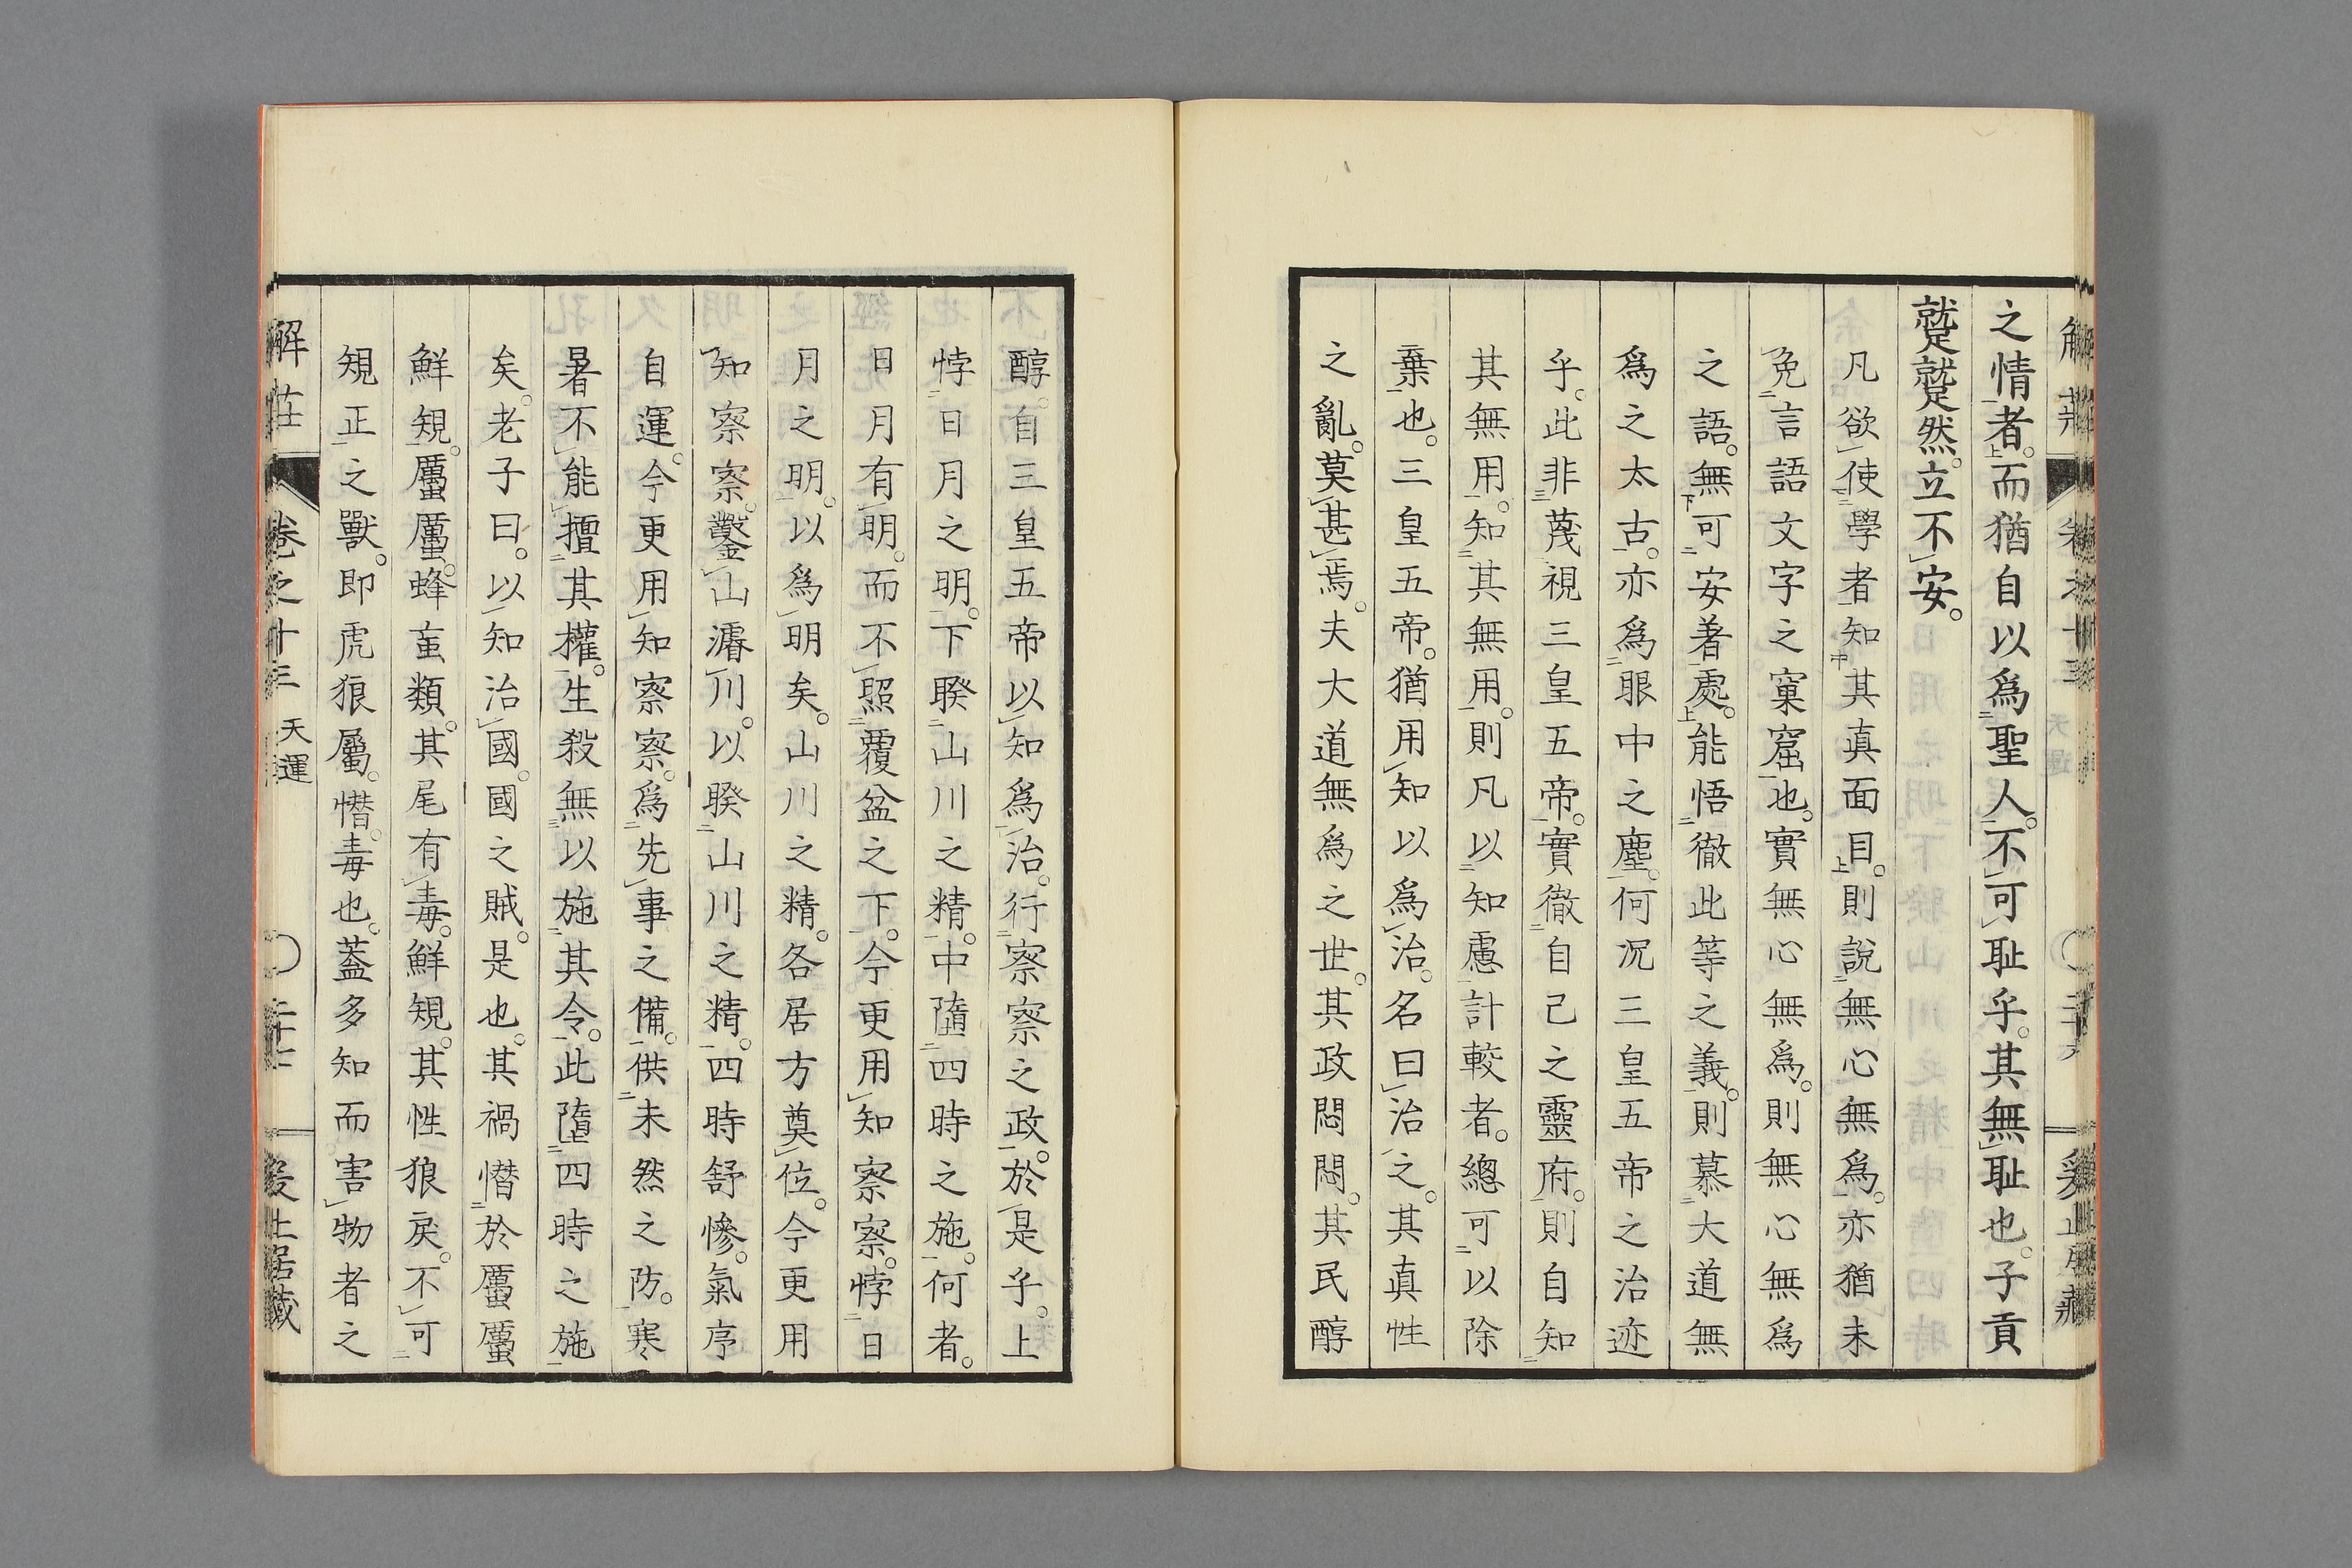 之情者。而猶自以爲聖人。不可耻乎。其無耻也。子貢
蹵蹵然。立不安。
凡欲使學者知其真面目。則說無心無爲。亦猶未
免言語文字之窠窟也。實無心無爲。則無心無爲
之語。無可安著處。能悟徹此等之義。則慕大道無
爲之太古。亦爲眼中之塵。何况三皇五帝之治迹
乎。此非蔑視三皇五帝。實徹自己之靈府。則自知
其無用。知其無用。則凡以知慮計較者。總可以除
棄也。三皇五帝。猶用知以爲治。名曰治之。其真性
之亂。莫甚焉。夫大道無爲之世。其政悶悶。其民醇
醇。自三皇五帝以知爲治。行察察之政。於是乎。上
悖日月之明。下睽山川之精。中隳四時之施。何者。
日月有明。而不照覆盆之下。今更用知察察。悖日
月之明。以爲明矣。山川之精。各居方奠位。今更用
知察察。鑿山濬川。以睽山川之精。四時舒慘。氣序
自運。今更用知察察。爲先事之備。供未然之防。寒
暑不能擅其權。生殺無以施其令。此隳四時之施
矣。老子曰。以知治國。國之賊。是也。其禍憯於蠆
鮮規。蠆蠆。蜂蚃類。其尾有毒。鮮規。其性狼戾。不可
規正之獸。即虎狼屬。憯毒也。蓋多知而害物者之
解莊 卷之十三 天運